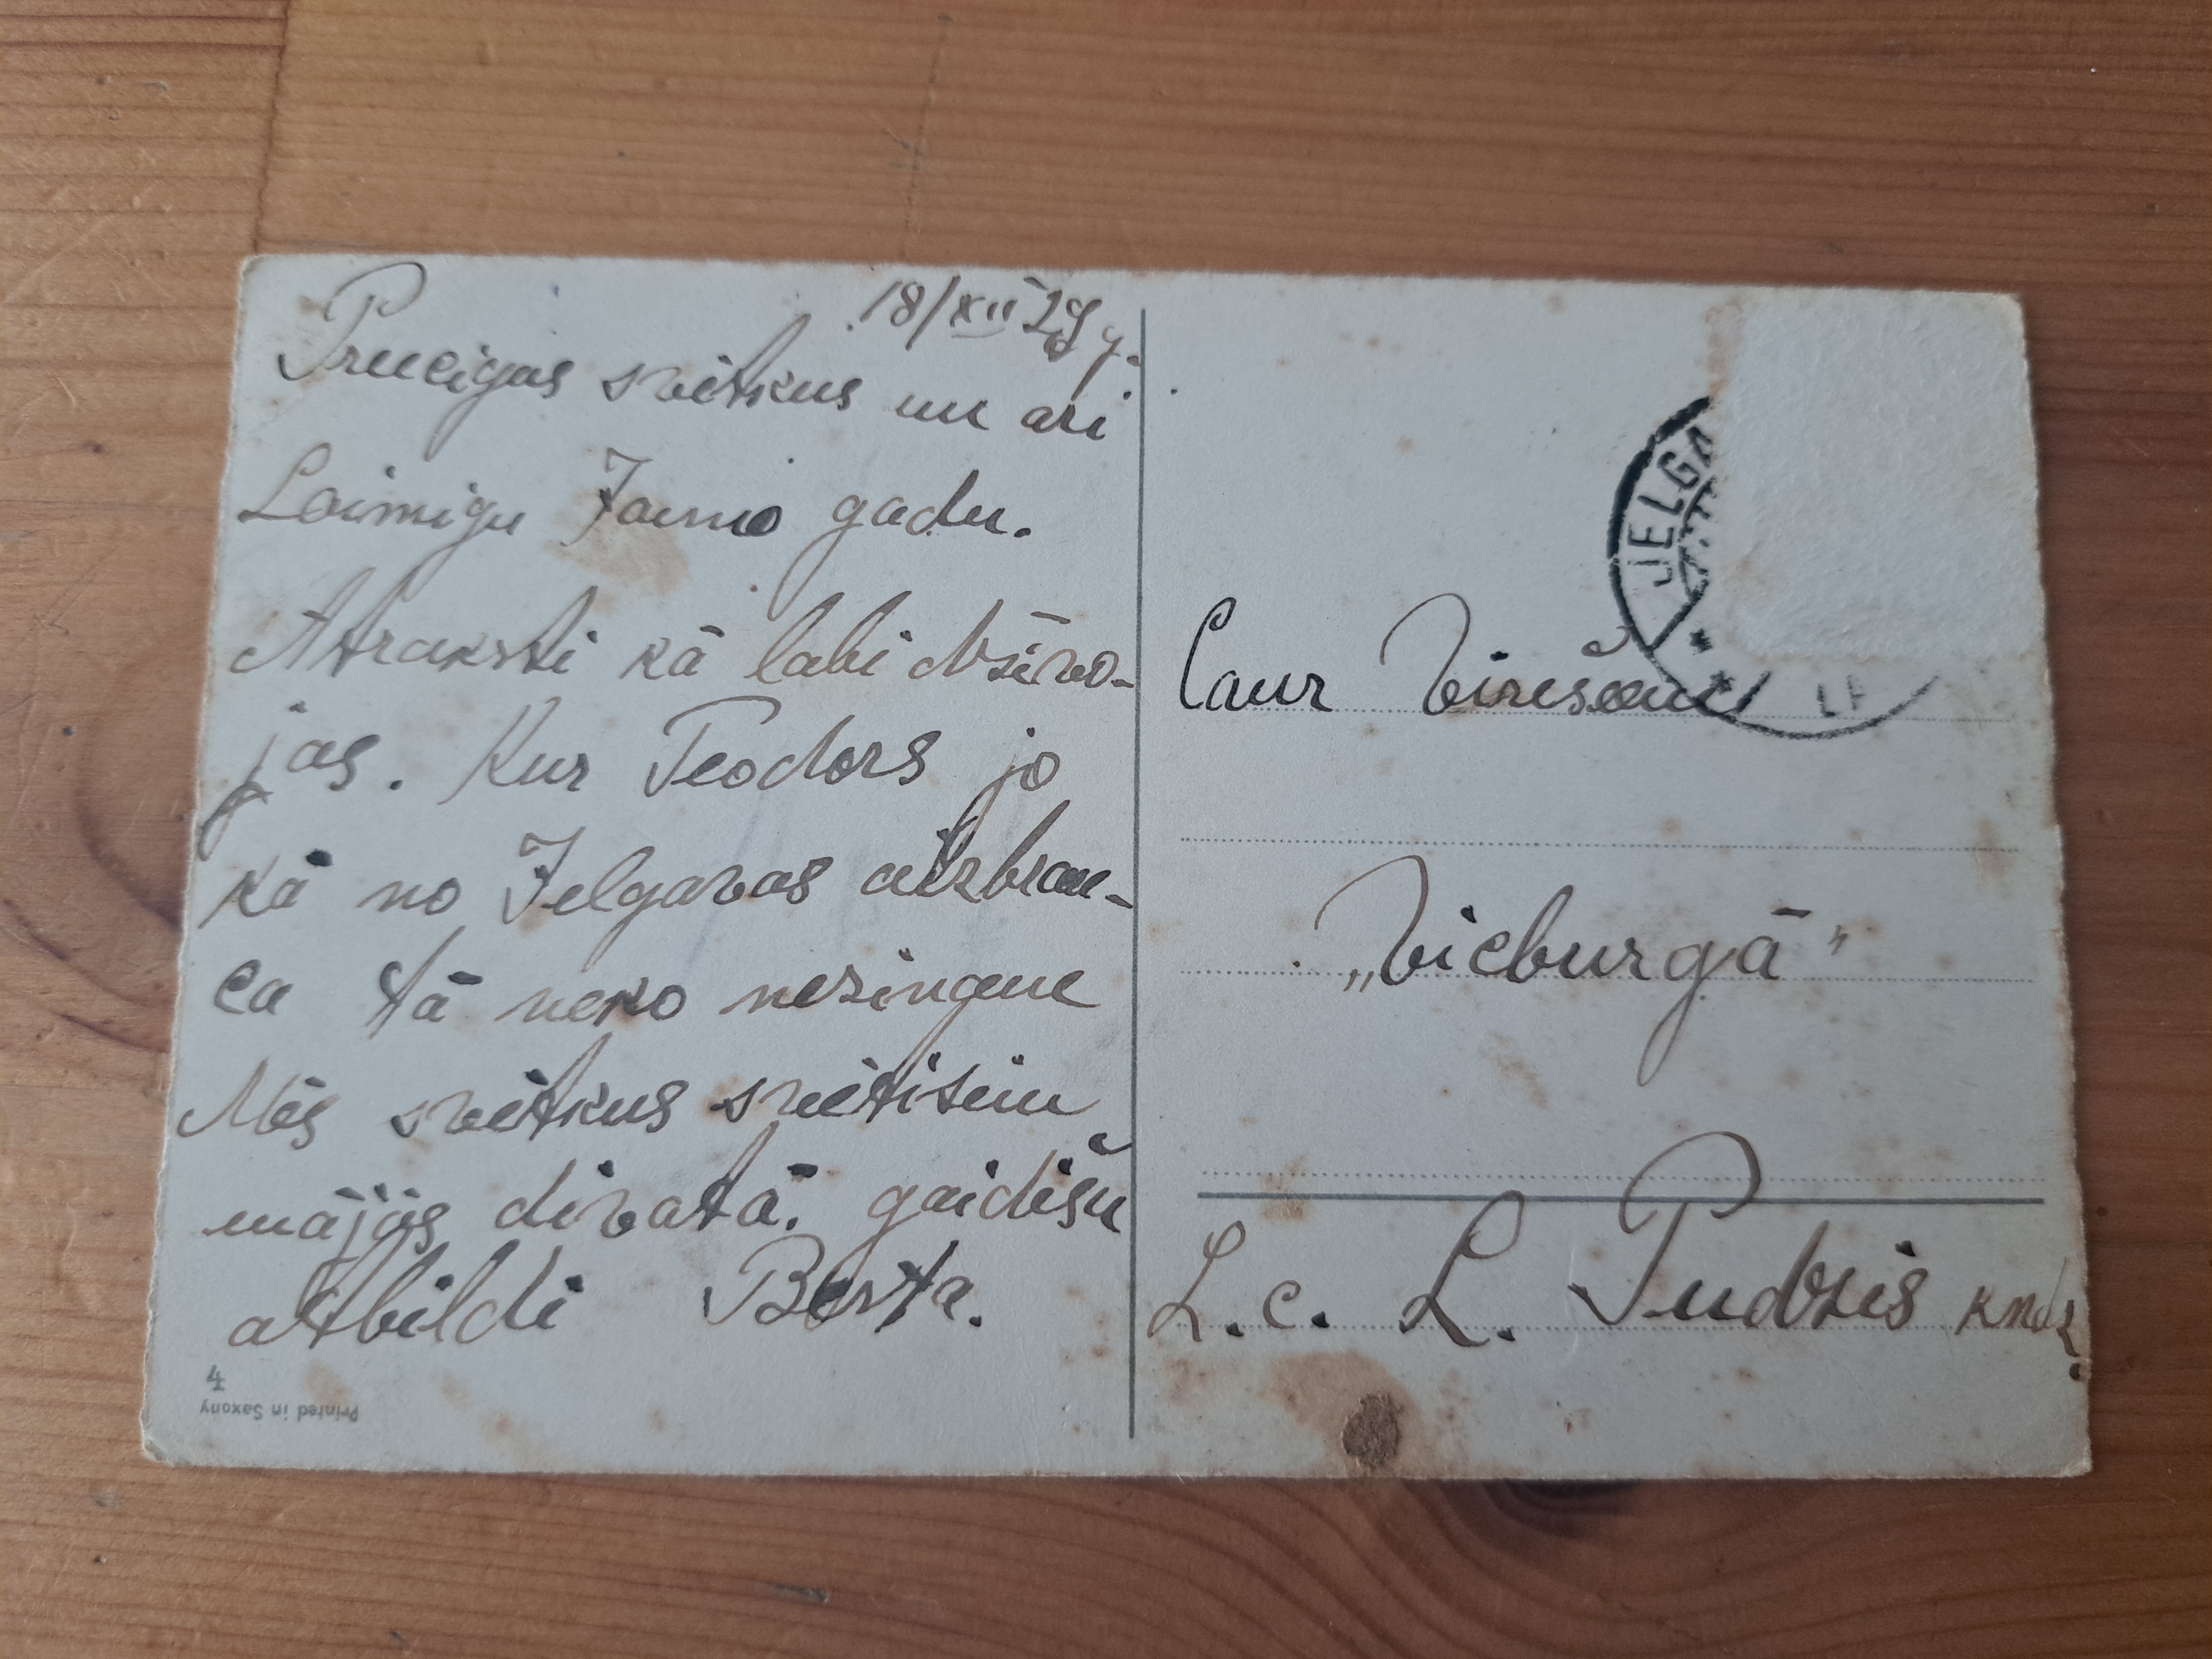 18/XII 29 g.
Priecigas svētkus un ari
Laimigu Jauno gadu.
Atraksti kā labi dzīvo-
jas. Kur Teodors jo
kā no Jelgavas aizbrau-
ca tā neko nezinam
Mēs svētkus svētisim
mājās divatā. gaidišu
atbildi Berta.
Printed in Saxony
4
JELGA
Caur Vircšavu
„Vicburgā"
L.c. L. Pudzis kndz.